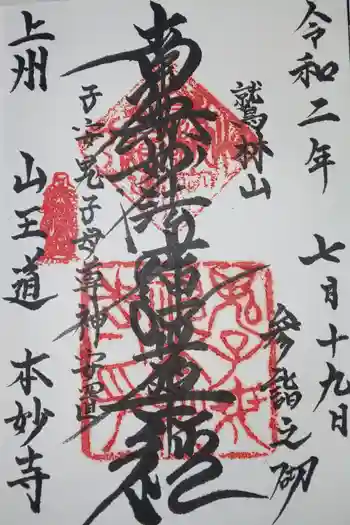 令和二年 七月十九日
鷲林山
参詣之砌
南無妙法蓮華経
子安鬼子母尊神 安置
上州 山王道 本妙寺